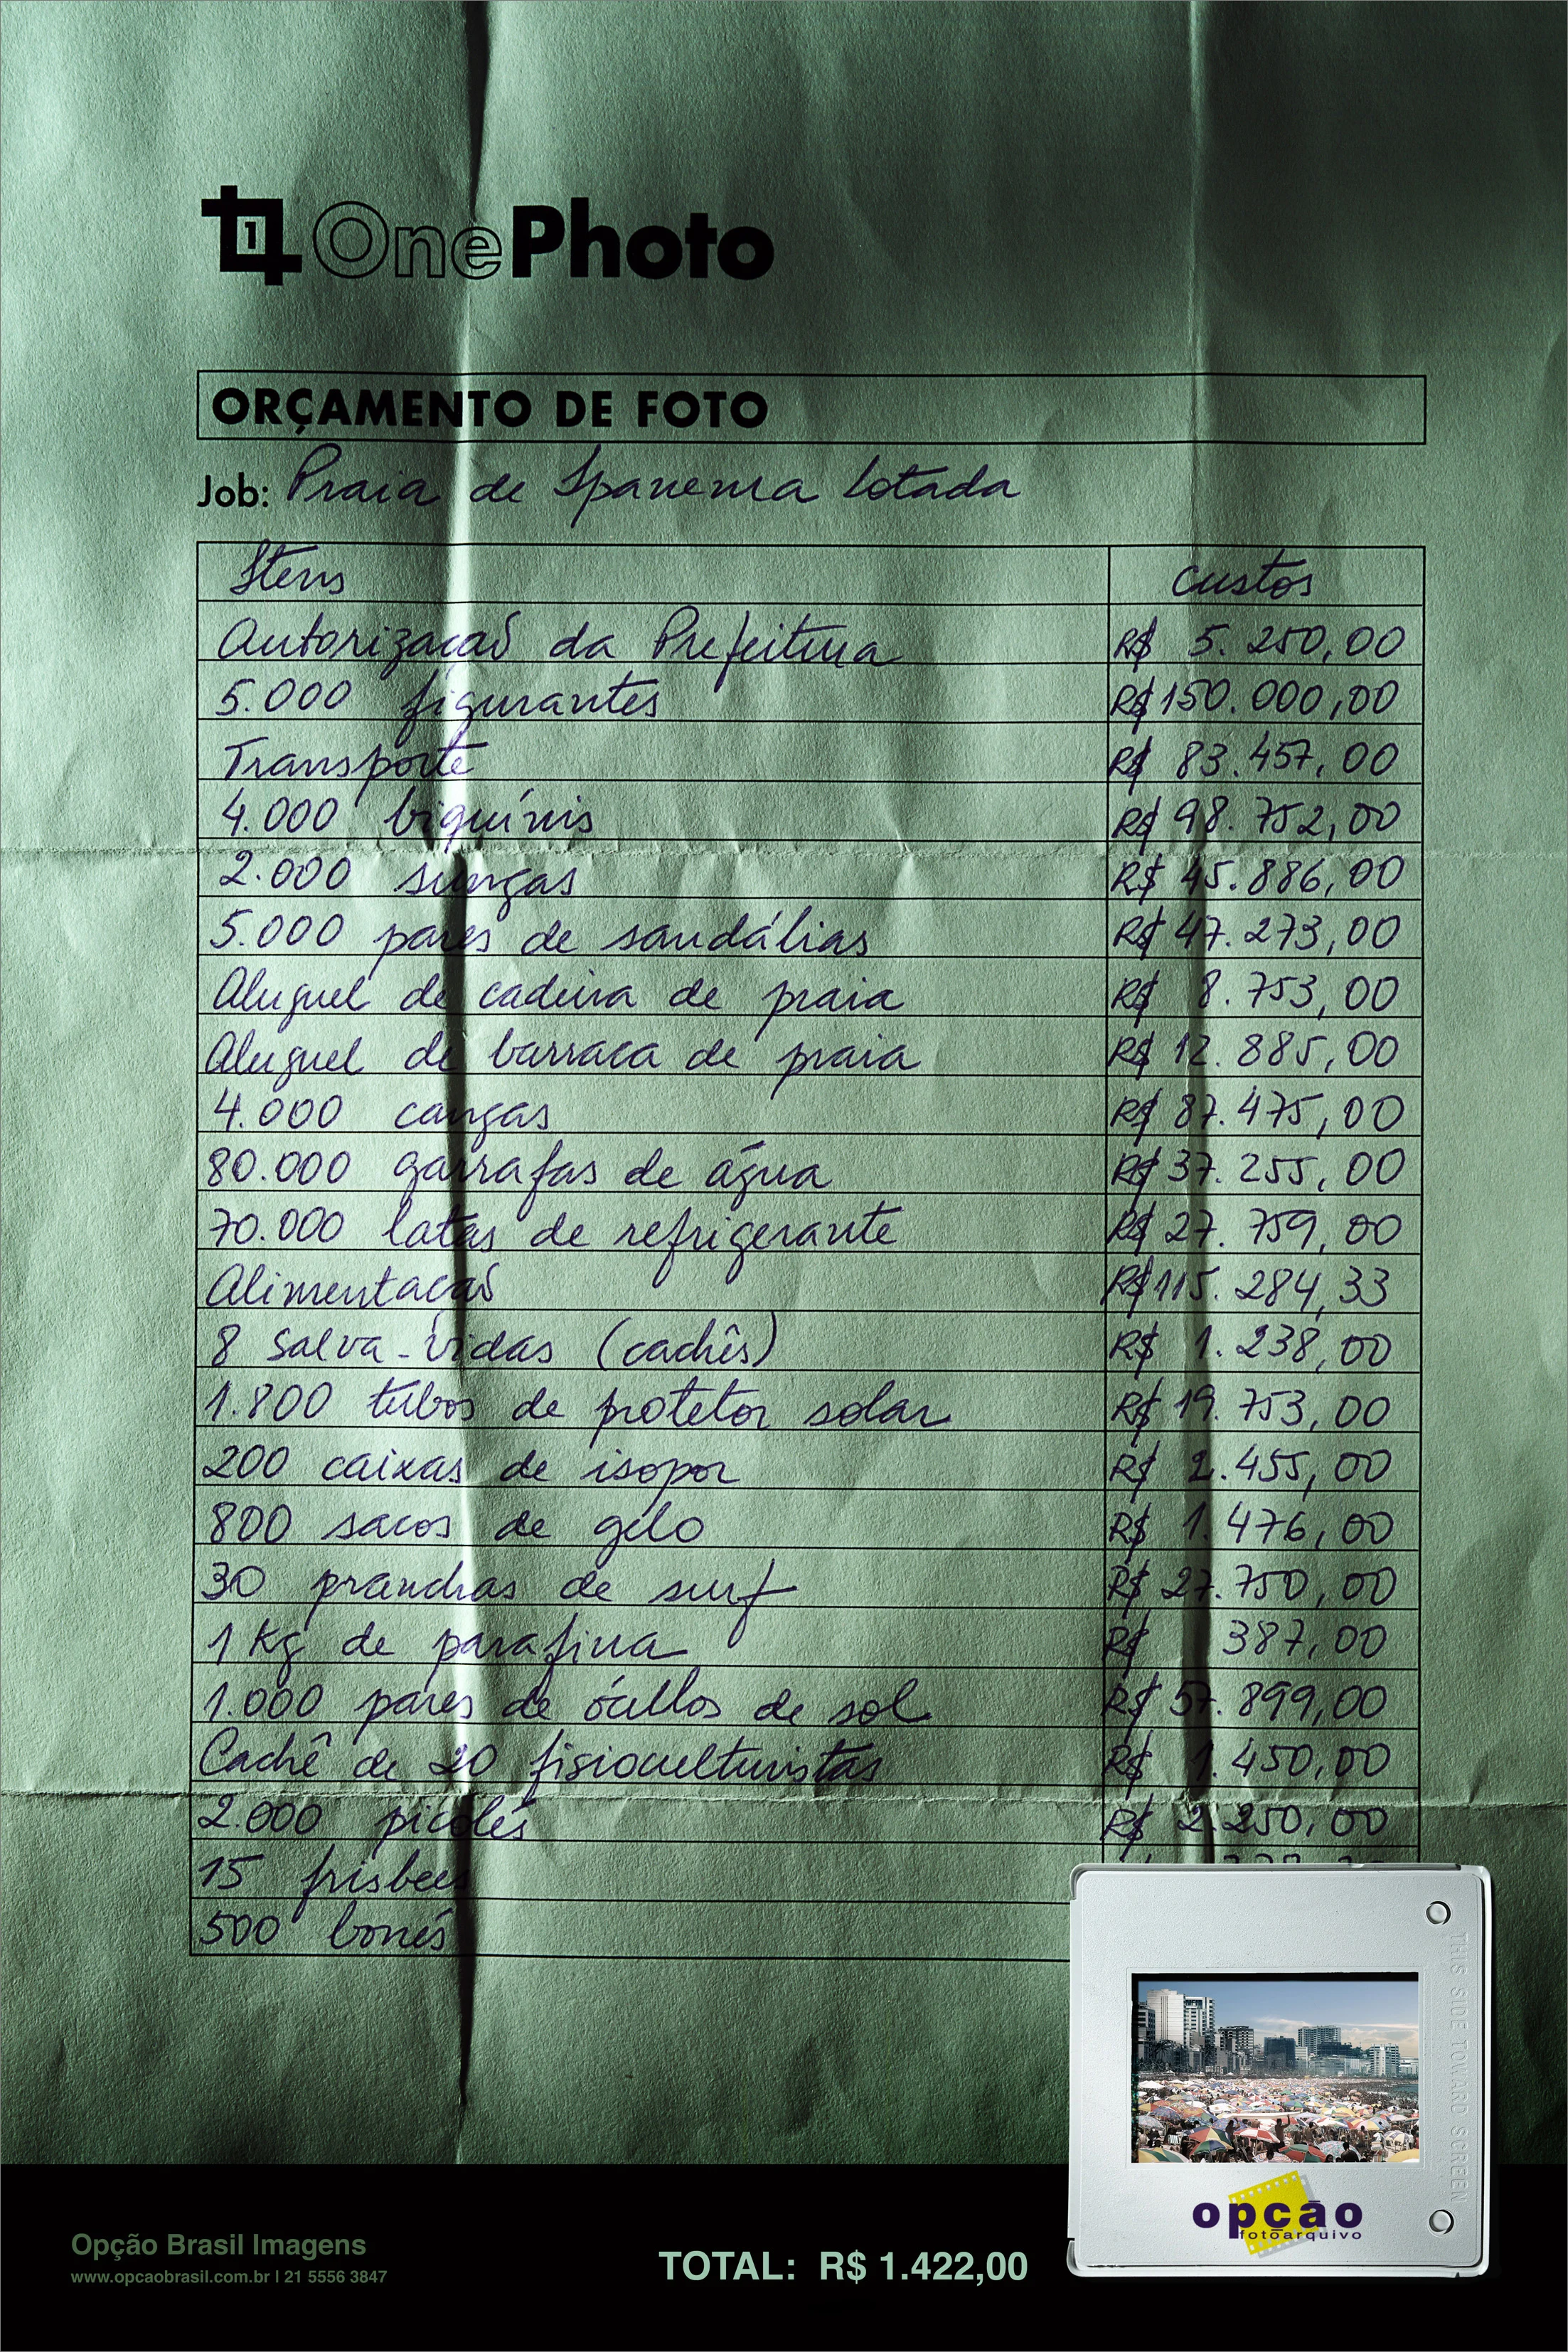 1 OnePhoto
ORÇAMENTO DE FOTO
Job: Praia de Ipanema lotada
Itens custos
Autorização da Prefeitura R$ 5.250,00
5.000 figurantes R$ 150.000,00
Transporte R$ 83.457,00
4.000 biquínis R$ 98.752,00
2.000 sungas R$ 45.886,00
5.000 pares de sandálias R$ 47.273,00
Aluguel de cadeira de praia R$ 8.753,00
Aluguel de barraca de praia R$ 12.885,00
4.000 cangas R$ 87.475,00
80.000 garrafas de água R$ 37.255,00
70.000 latas de refrigerante R$ 27.759,00
Alimentação R$ 115.284,33
8 salva-vidas (cachês) R$ 1.238,00
1.800 tubos de protetor solar R$ 19.753,00
200 caixas de isopor R$ 2.455,00
800 sacos de gelo R$ 1.476,00
30 pranchas de surf R$ 27.750,00
1 Kg de parafina R$ 387,00
1.000 pares de óculos de sol R$ 57.899,00
Cachê de 20 fisioculturistas R$ 1.450,00
2.000 picolés R$ 2.250,00
15 frisbees
500 bonés
THIS SIDE TOWARD SCREEN
opção
fotoarquivo
Opção Brasil Imagens
www.opcaobrasil.com.br | 21 5556 3847
TOTAL: R$ 1.422,00